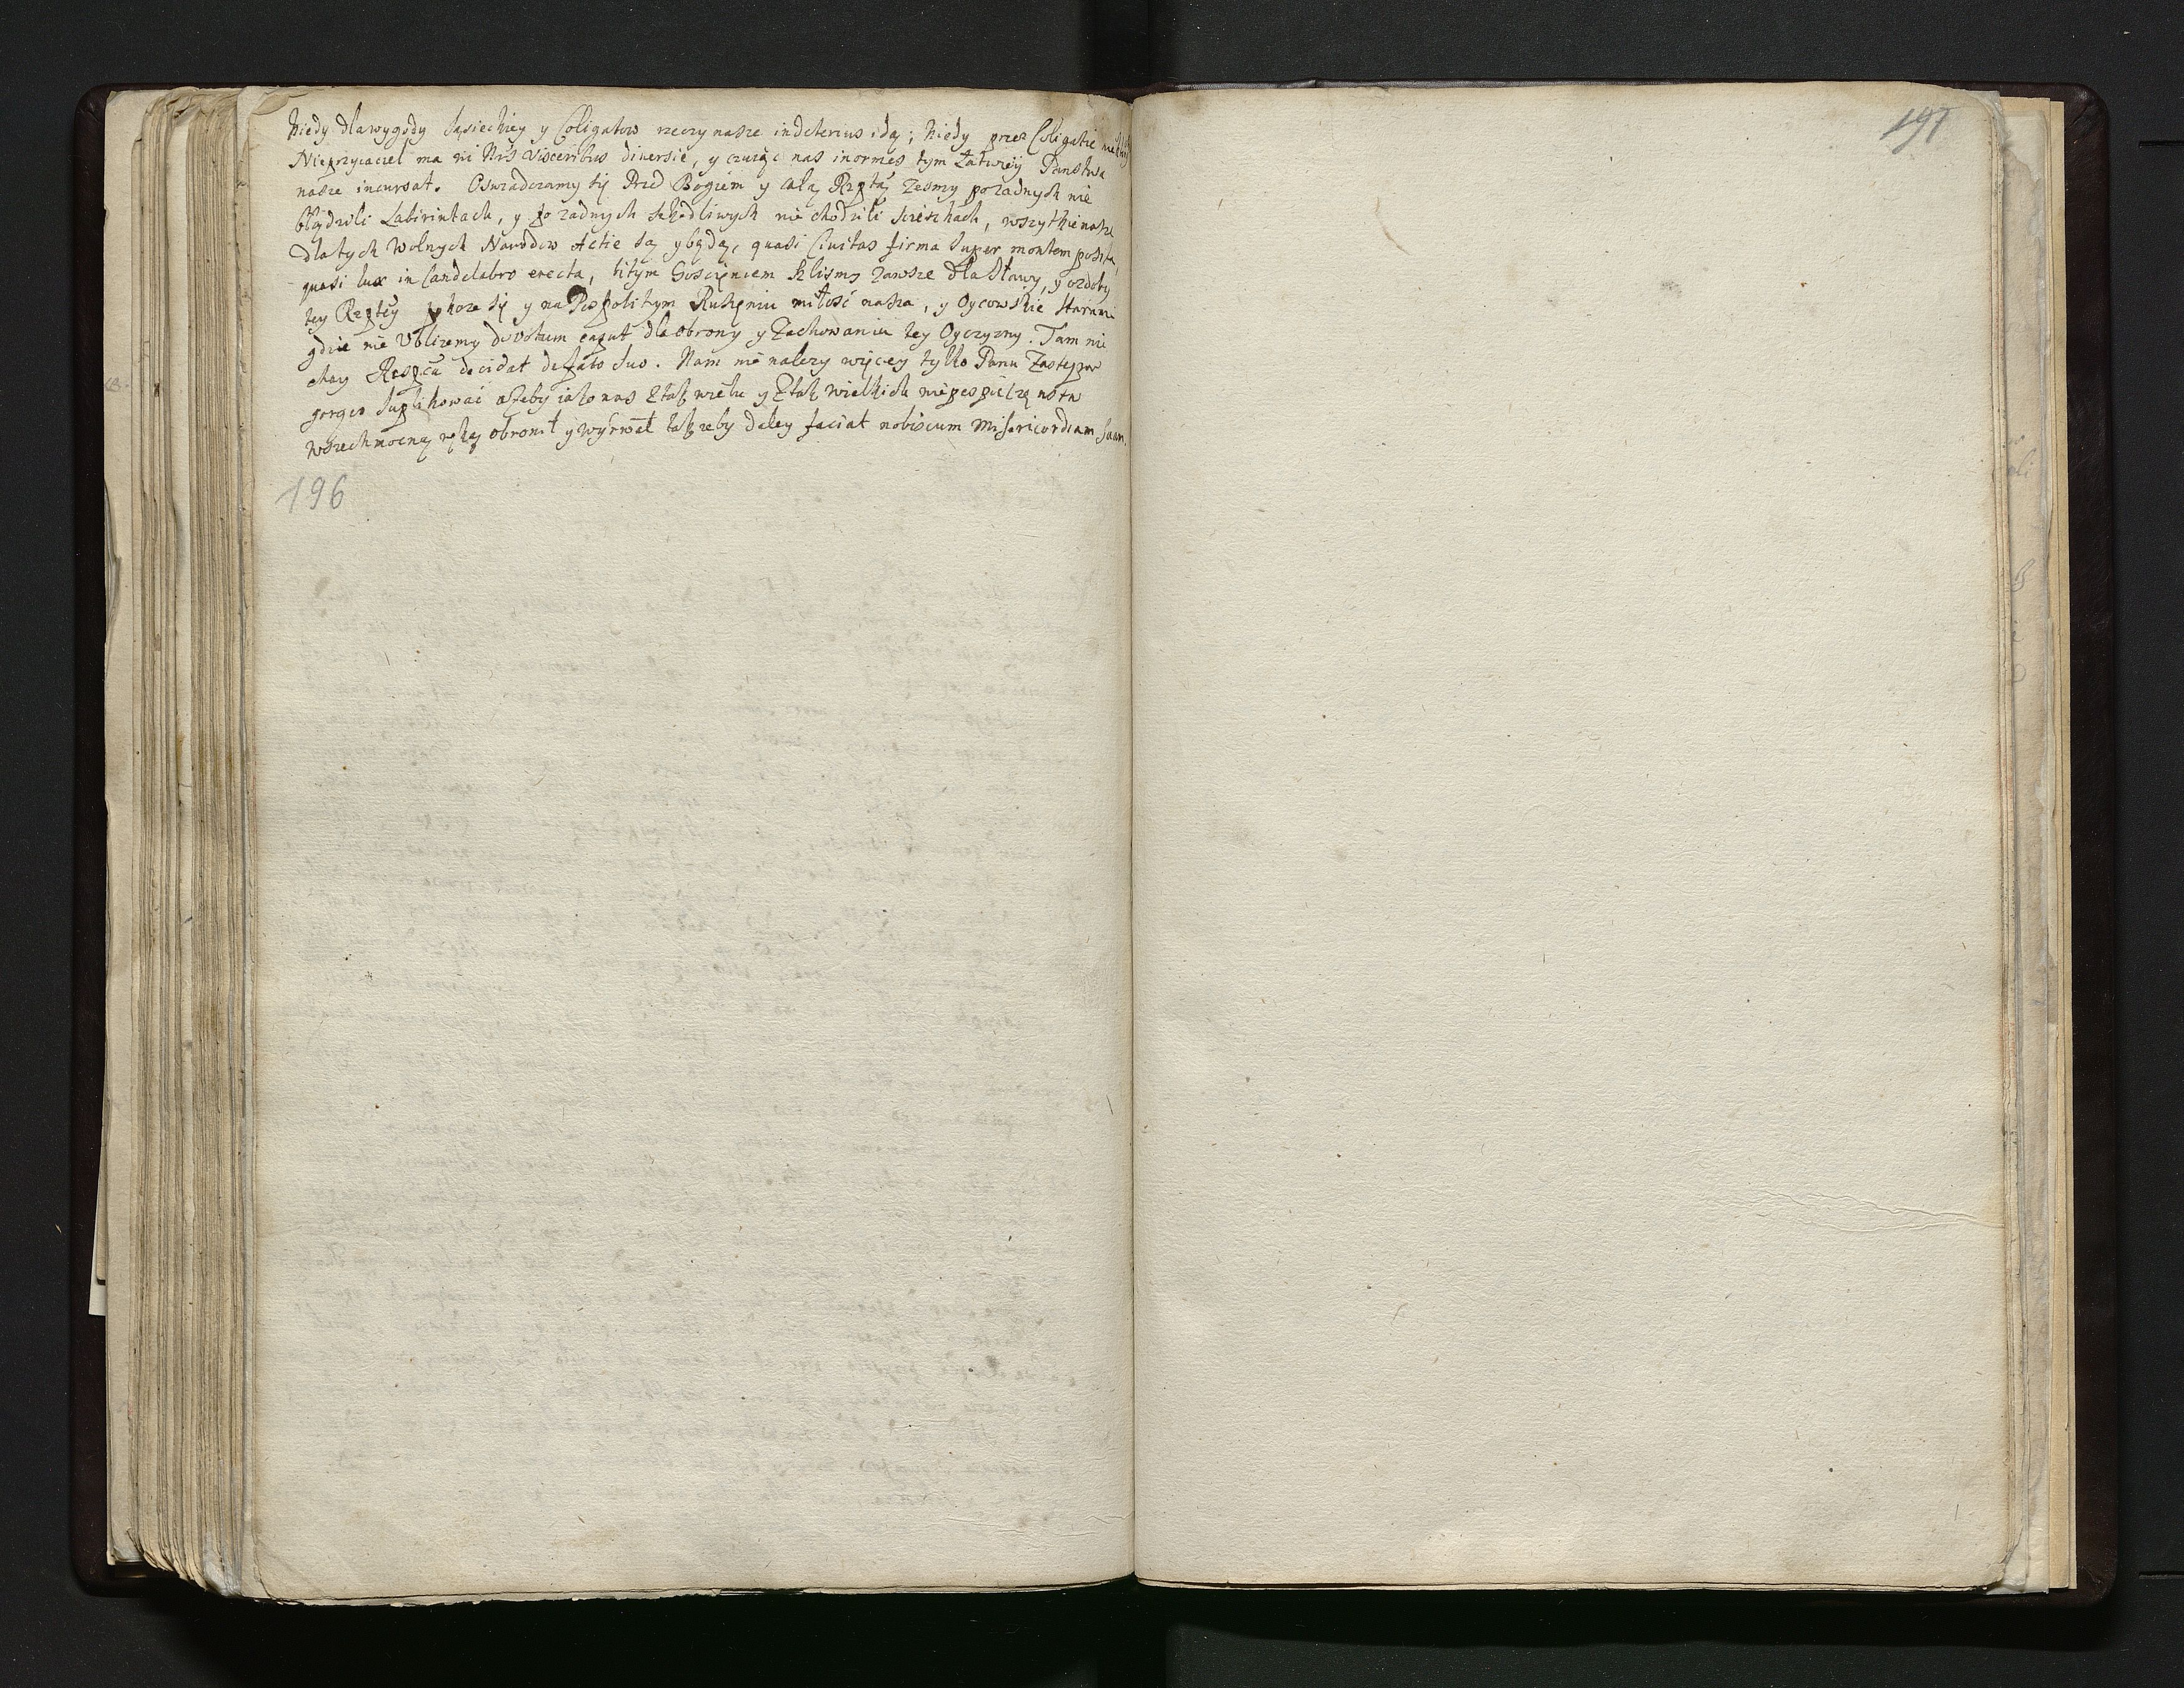 kiedy dla wygody Sąsieckiey y Coligatow rzeczy nasze in deterius idą; kiedy przez Coligatie
Nieprzyiaciel ma in Nris visceribus diversie, y czuiąc nas inermes tym Łatwiey Państwa
nasze incursat. Oswiadczamy się Przed Bogiem y całą Rzptą zesmy po zadnych nie
błądzili Labirintach, y po zadnych szkodliwych nie chodzili scieszkach, wszytkie nasze
dla tych Wolnych Narodow Actie są y będą, quasi Civitas firma super montem posita,
quasi lux in Candelabro erecta, bitym Goscięncem szlismy zawsze dla Sławy, y ozdoby
tey Rzptey pokaze się y na Pospolitym Ruszęniu miłość nasza, y Oycowskie staranie
gdzie nie Ublizemy devotum caput dla obrony y Zachowania tey Oyczyzny. Tam nie
chay Respca decidat de fato suo. Nam nie nalezy więcey tylko Panu Zastępow
gorąco suplikować azeby iako nas z tak wielu y z tak wielkich niebespieczęnstw
wszechmocną ręką obronił y wyrwał tak zeby daley faciat nobiscum Misericordiam suam.
196
197